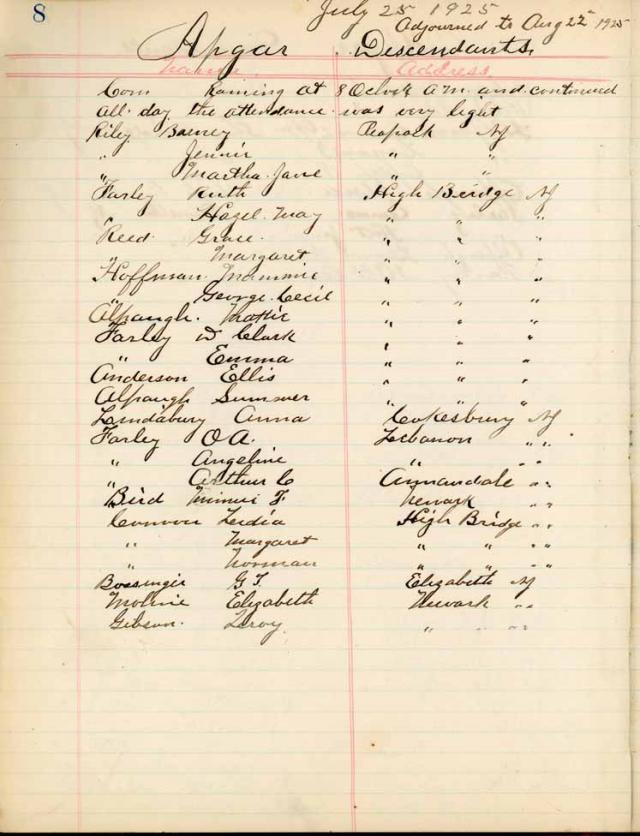 8
July 25 1925
Adjourned to Aug 22 1925
Apgar Descendants
Name Address
Com Raining at 8 Oclock A.M. and continued
all day the attendance was very light
Riley Barney Peapack NJ
" Jennie " "
" Martha Jane " "
Farley Ruth High Bridge NJ
" Hazel May " " "
Reed Grace " " "
" Margaret " " "
Hoffman Mammie " " "
" George Cecil " " "
Alpaugh Mattie " " "
Farley D Clark " " "
" Emma " " "
Anderson Ellis " " "
Alpaugh Sumner " " "
Lamdabury Anna Cokesbury NJ
Farley O A. Lebanon " "
" Angeline " " "
" Arthur C Annandale " "
Bird Minnie F. Newark " "
Connor Lydia High Bridge " "
" Margaret " " "
" Norman " " "
G. T. Elizabeth NJ
Elizabeth Newark " "
Gibson Leroy " " "